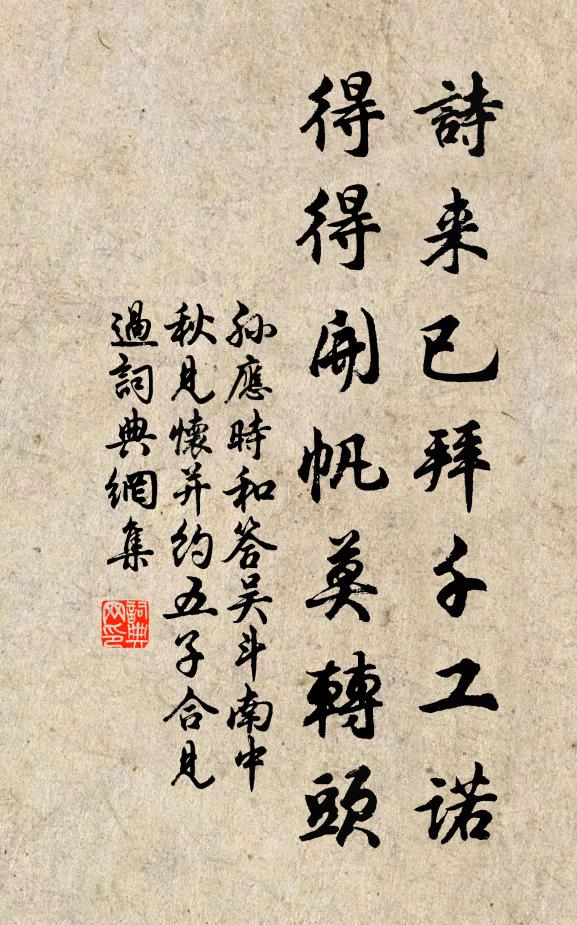 詩来已拜千工諾
得得開帆莫轉頭
孙應時和答吴斗南中
秋見懷并約五子合見
過詞典網集
詞典网印